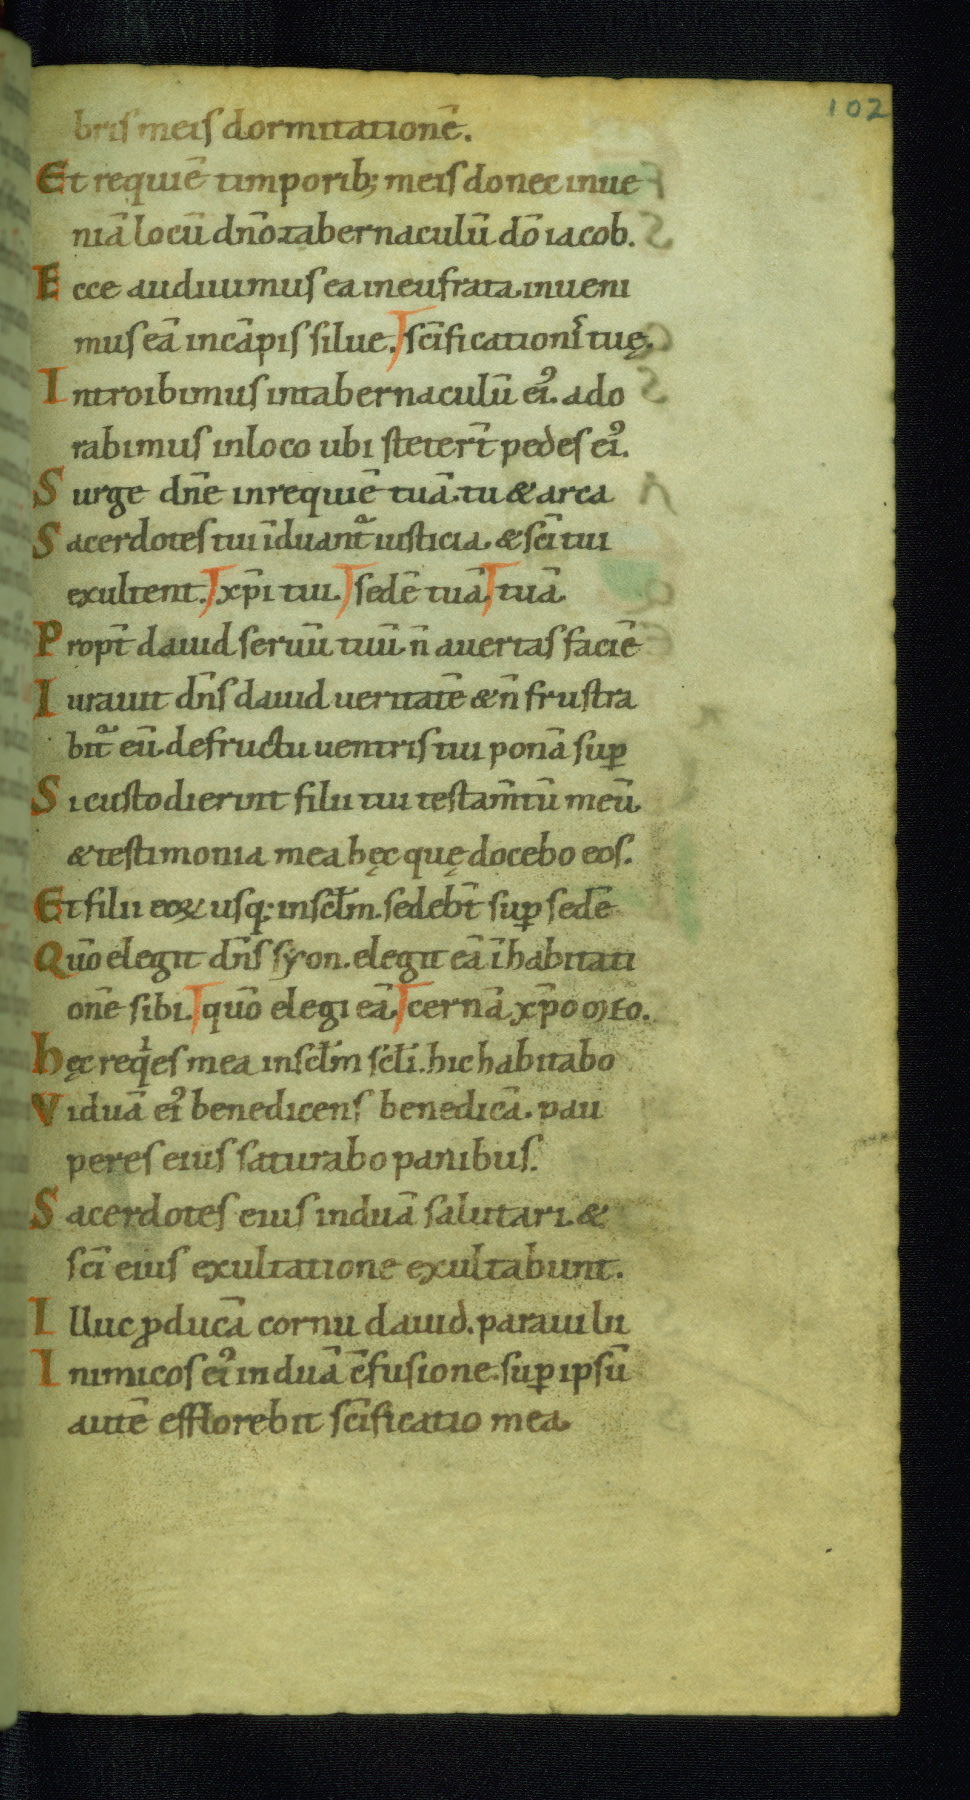 102
bris meis dormitationē.
Et requiē timporib; meis donec inue
niā locū dn̄o tabernaculū dō iacob.
Ecce audiuimus ea in eufrata inueni
mus eā in cāpis silue. sc̄ificationis tuę.
Introibimus in tabernaculū ei᾽. ado
rabimus in loco ubi steter̄t pedes ei᾽.
Surge dn̄e in requiē tuā. tu & arca
Sacerdotes tui īduant᷑ iusticia. & sc̄i tui
exultent. xp̄i tui. sedē tuā tuā
Propt̄ dauid seruū tuū n̄ auertas faciē
Iurauit dn̄s dauid ueritatē & n̄ frustra
bit᷑ eū. de fructu uentris tui ponā suꝑ
Si custodierint filii tui testam̄tū meū
& testimonia mea hęc quę docebo eos.
Et filii eoꝝ usq; in sc̄lm. sedeb̄t suꝑ sedē
Quō elegit dn̄s syon. elegit eā ī habitati
onē sibi. quō elegi eā cernā xp̄o mo.
hęc reqⁱes mea in sc̄lm sc̄li. hic habitabo
Viduā ei᾽ benedicens benedicā. pau
peres eius saturabo panibus.
Sacerdotes eius induā salutari. &
sc̄i eius exultatione exultabunt.
Illuc ꝓducā cornu dauid. paraui lu
Inimicos ei᾽ induā c̄fusione. suꝑ ipsū
autē efflorebit sc̄ificatio mea